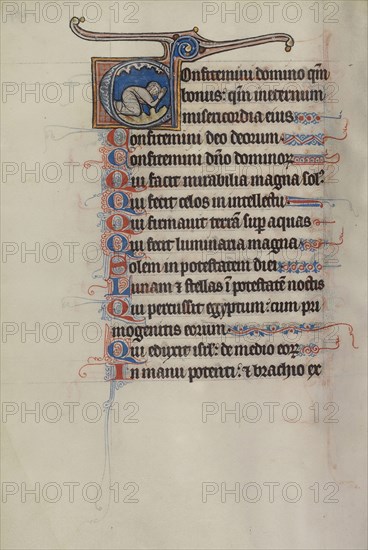 Confitemini domino qm̄
bonus: qm̄ in eternum
misericordia eius
Confitemini deo deorum
Confitemini dn̄o dominoꝝ
Qui facit mirabilia magna solꝰ
Qui fecit celos in intellectu
Qui firmauit terrā suꝑ aquas
Qui fecit luminaria magna
Solem in potestatem diei
Lunam & stellas ī potestatē noctis
Qui percussit egyptum: cum pri
mogenitis eorum
Qui eduxit isrl̄: de medio eoꝝ
In manu potenti: & brachio ex
PHOTO 12